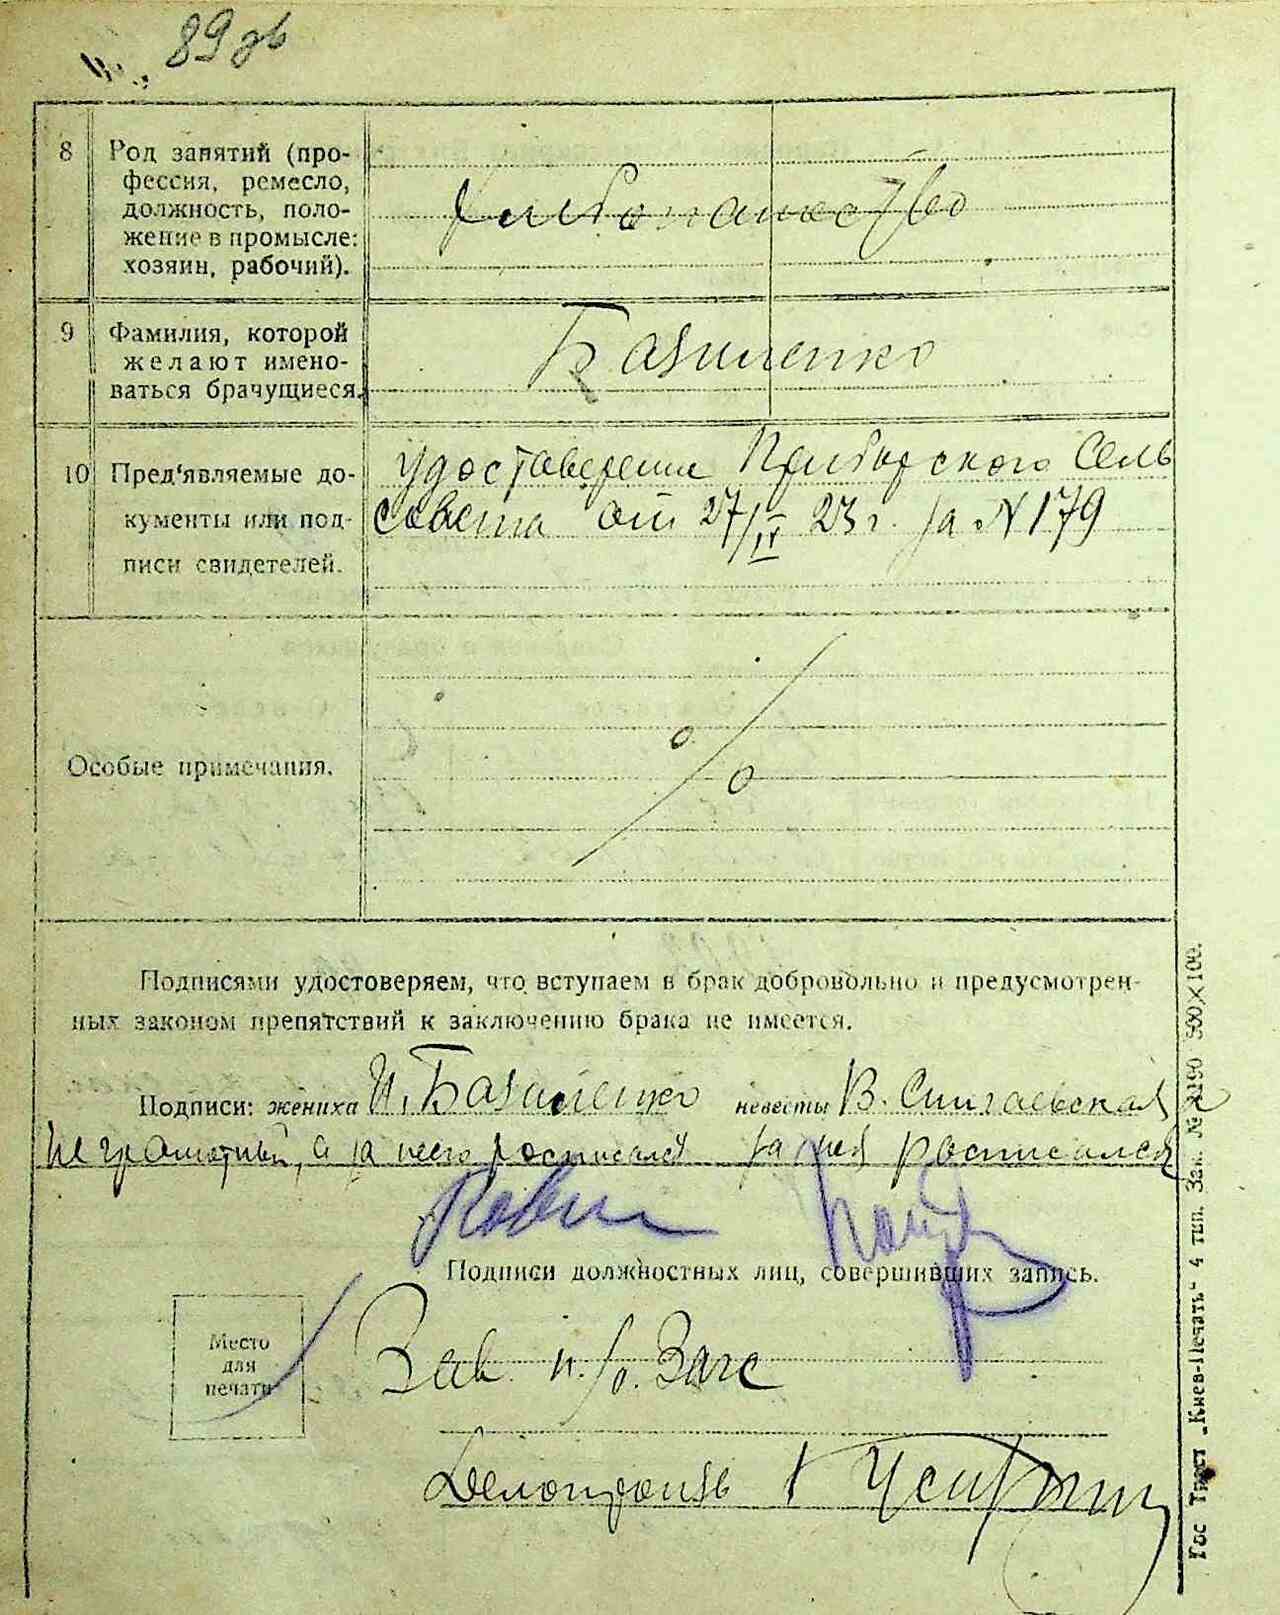 89 зв
8 Род занятий (про-
фессия, ремесло,
должность, поло-
жение в промысле:
хозяин, рабочий).
хлебопашество
9 Фамилия, которой
желают имено-
ваться брачущиеся.
Базиленко
10 Пред'являемые до-
кументы или под-
писи свидетелей.
Удостоверение Прибирского Сель
совета от 27/IV 23 г. за N 179
Особые примечания.
Подписями удостоверяем, что вступаем в брак добровольно и предусмотрен-
ных законом препятствий к заключению брака не имеется.
Подписи: жениха И. Базиленко невесты В. Сингаевская
неграмотный, а за него росписался за нея росписался
Подписи должностных лиц, совершивших запись.
Место
для
печати
Зав. п/о. Загс
Делопроизв
Гос Трест „Киев-Печать" 4 тип. Зак. № 2190 500×100.